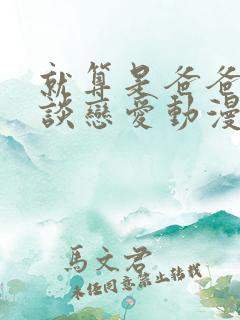 就算是爸爸
談戀愛動漫
馬文君
未經同意禁止轉載